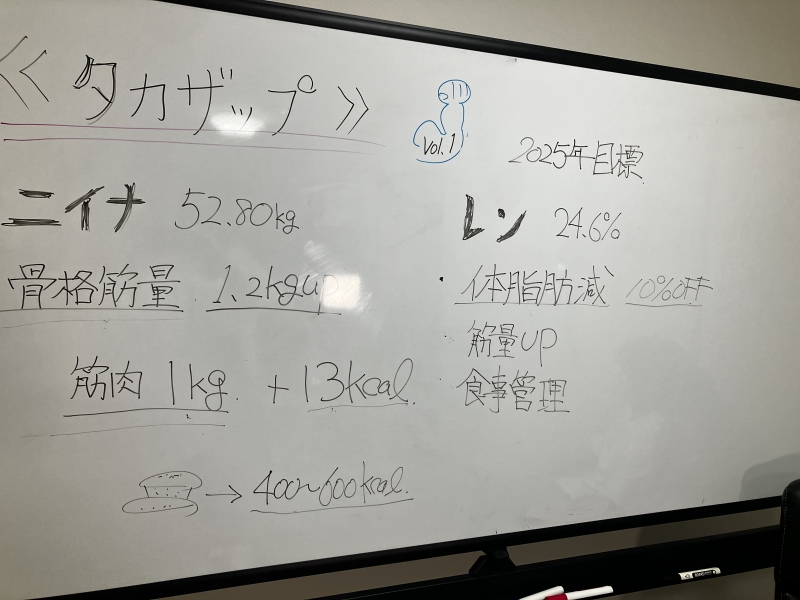 《タカザップ》
Vol.1
2025年目標
ニイナ 52.80kg
骨格筋量 1.2kgup
筋肉 1kg + 13kcal
→ 400~600kcal.
レン 24.6%
・体脂肪減 10%OFF
・筋量UP
・食事管理